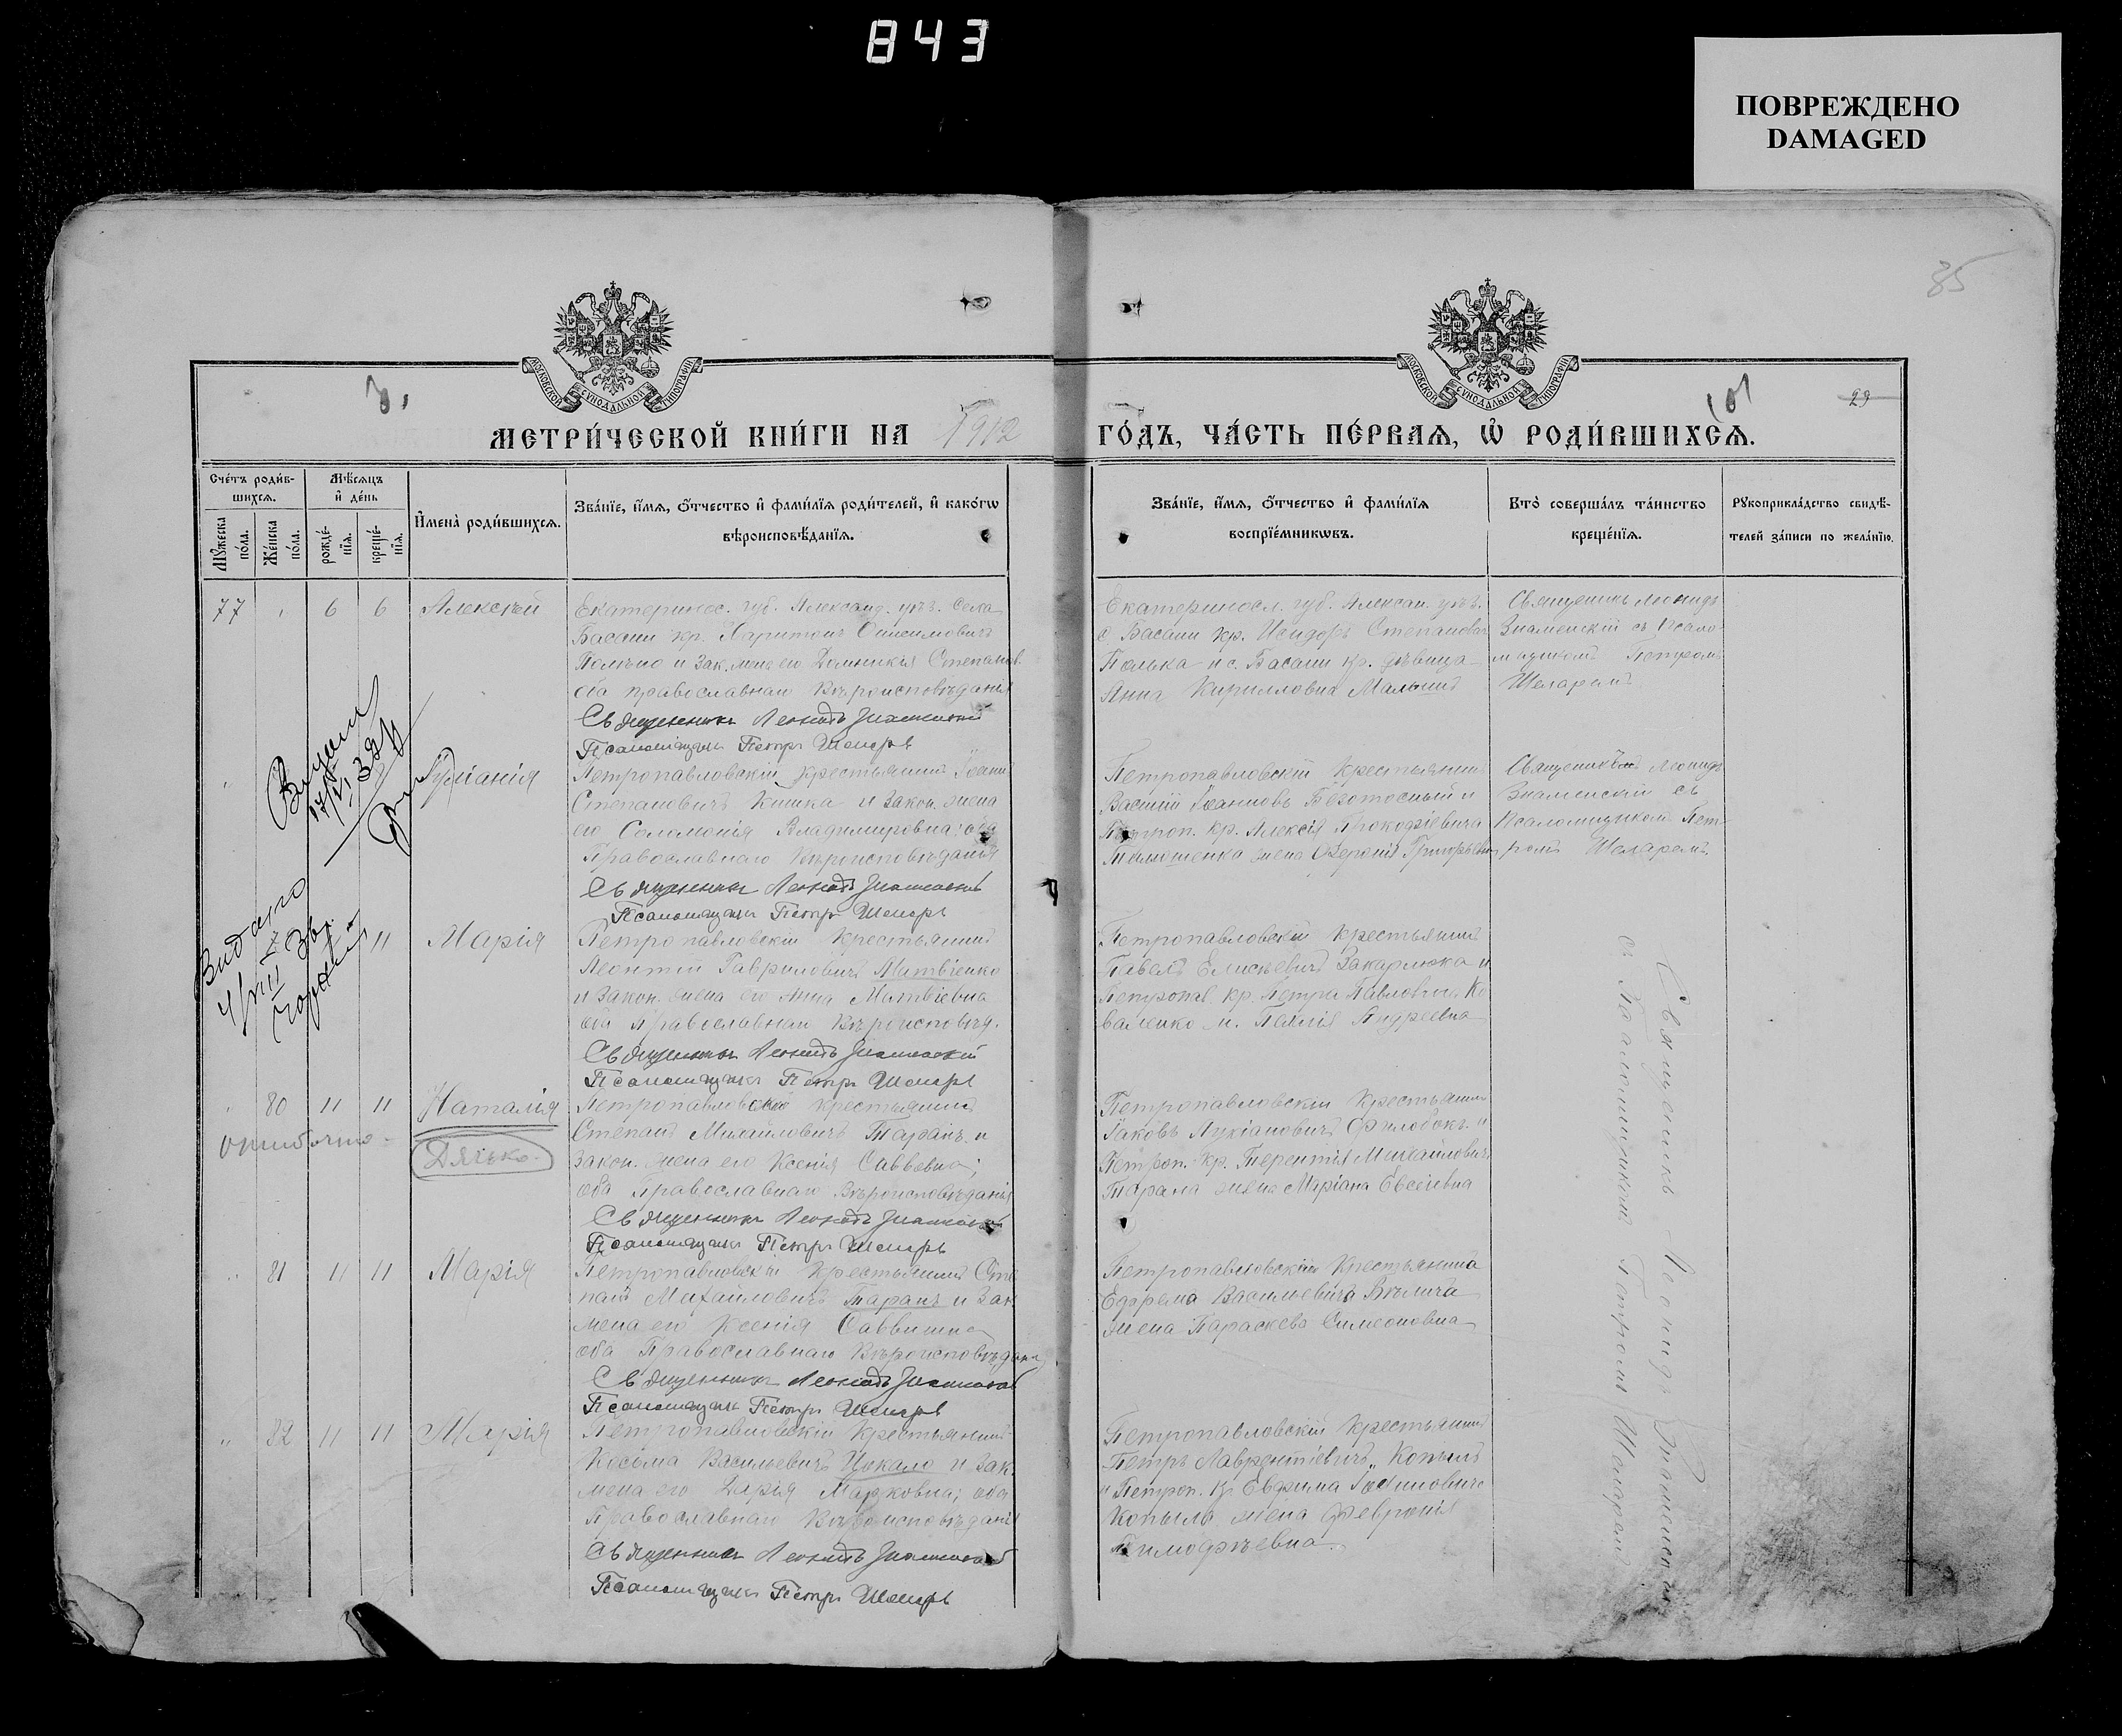 843
ПОВРЕЖДЕНО
DAMAGED
35
МОСКОВСКОЙ СѴНОДАЛЬНОЙ ТИПОГРАФІИ
МОСКОВСКОЙ СѴНОДАЛЬНОЙ ТИПОГРАФІИ
101
29
МЕТРИ́ЧЕСКОЙ КНИ́ГИ НА 1912
ГО́ДЪ, ЧА́СТЬ ПЕ́РВАѦ, Ѡ҆ РОДИ́ВШИХСѦ.
Сче́тъ роди́в-
шихсѧ.
Мѣ́сѧцъ
и҆ де́нь
Мꙋ́жеска
по́ла.
Же́нска
по́ла.
рожде́-
нїѧ.
креще́-
нїѧ.
И҆мена̀ роди́вшихсѧ.
Зва́нїе, и҆́мѧ, ѻ҆́тчество и҆ фами́лїѧ роди́телей, и҆ како́гѡ
вѣроисповѣ́данїѧ.
Зва́нїе, и҆́мѧ, ѻ҆́тчество и҆ фами́лїѧ
воспрїе́мникѡвъ.
Кто̀ соверша́лъ та́инство
креще́нїѧ.
Рꙋкоприкла́дство свидѣ́-
телей за́писи по жела́нїю.
77 " 6 6 Алексѣй
Екатеринос. губ. Александ. уѣз. села
Басани кр. Харитонъ Онисимовичъ
и зак. жена его Домникія Степанов.
оба православнаго Вѣроисповѣданія
Священникъ Леонидъ Знаменскій
Псаломщикъ Петръ Шеларь
Екатериносл. губ. Алексан. уѣз.
с Басани кр. Исидоръ Степановъ
Полька и с. Басани кр. дѣвица
Анна Кирилловна
Священикъ Леонидъ
Знаменскій съ Псало-
мщикомъ Петромъ
Шеларемъ
Іуліанія
Петропавловскій крестьянинъ Іоаннъ
Степановичъ Кишка и закон. жена
его Соломонія Владимировна; оба
Православнаго Вѣроисповѣданія
Священникъ Леонидъ Знаменскій
Псаломщикъ Петръ Шеларь
Петропавловскій крестьянинъ
Василій Іоанновъ Безотосный и
Петроп. кр. Алексія Прокофіевича
жена Григорьевна
Священикъ Леонидъ
Знаменскій съ
Псаломщикомъ Пет-
ромъ Шеларемъ
Видано
11 Марія
Петропавловскій крестьянинъ
Леонтій Гавриловичъ Матвіенко
и закон. жена его Анна Матвіевна
оба православнаго Вѣроисповѣд.
Священникъ Леонидъ Знаменскій
Псаломщикъ Петръ Шеларь
Петропавловскій крестьянинъ
Павелъ Елисѣевичъ Закарлюка и
Петропав. кр. Петра Павловича Ко
валенко ж. Андреевна
" 80 11 11 Наталія
ошибочно
Дячько
Петропавловскій крестьянинъ
Степанъ Михайловичъ Таранъ и
закон. жена его Ксенія Саввевна;
оба Православнаго Вѣроисповѣданія
Священникъ Леонидъ Знаменскій
Псаломщикъ Петръ Шеларь
Петропавловскій крестьянинъ
Іаковъ Лукіановичъ и
Петроп. кр. Терентія Михайловича
Тарана жена Маріана Евсеіевна
" 81 11 11 Марія
Петропавловскій крестьянинъ Сте
панъ Михайловичъ Таранъ и зак.
жена его Ксенія Саввишна
оба Православнаго Вѣроисповѣдан
Священникъ Леонидъ Знаменскій
Псаломщикъ Петръ Шеларь
Петропавловскій крестьянина
Ефрема Васильевича
жена Параскева Симеоновна
" 82 11 11 Марія
Петропавловскій крестьянинъ
Косьма Васильевичъ Цокало и зак.
жена его Дарія Марковна; оба
Православнаго Вѣроисповѣданія
Священникъ Леонидъ Знаменскій
Псаломщикъ Петръ Шеларь
Петропавловскій крестьянинъ
Петръ Лаврентіевичъ Копылъ
и Петроп. кр. Евфима
Копыла жена Февронія
Тимофѣевна.
Священникъ Леонидъ Знаменскій
съ Псаломщикомъ Петромъ Шеларемъ